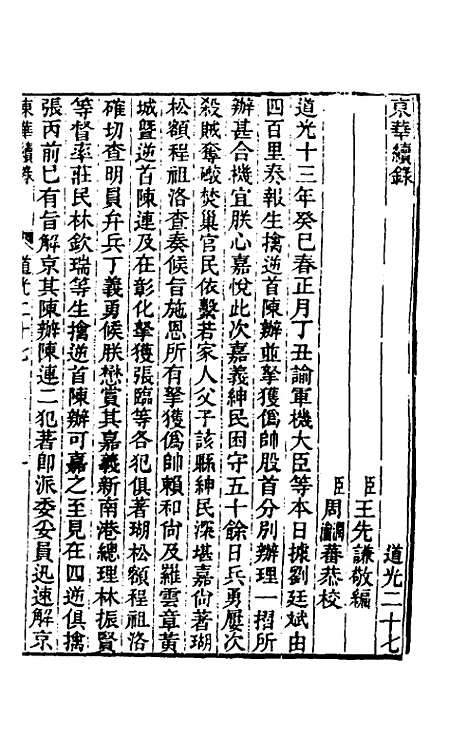 東華續錄　道光二十七
臣王先謙敬編
臣周潤蕃恭校
道光十三年癸巳春正月丁丑諭軍機大臣等本日據劉廷斌由
四百里奏報生擒逆首陳辦並拏獲僞帥股首分別辦理一摺所
辦甚合機宜朕心嘉悅此次嘉義紳民困守五十餘日兵勇屢次
殺賊奪礮焚巢官民依繫若家人父子該縣紳民深堪嘉尙著瑚
松額程祖洛查奏候旨施恩所有拏獲僞帥賴和尙及羅雲章黃
城曁逆首陳連及在彰化拏獲張臨等各犯俱著瑚松額程祖洛
確切查明員弁兵丁義勇候朕懋賞其嘉義新南港總理林振賢
等督率莊民林欽瑞等生擒逆首陳辦可嘉之至見在四逆俱擒
張丙前已有旨解京其陳辦陳連二犯著卽派委妥員迅速解京
東華續錄　道光二十七　一